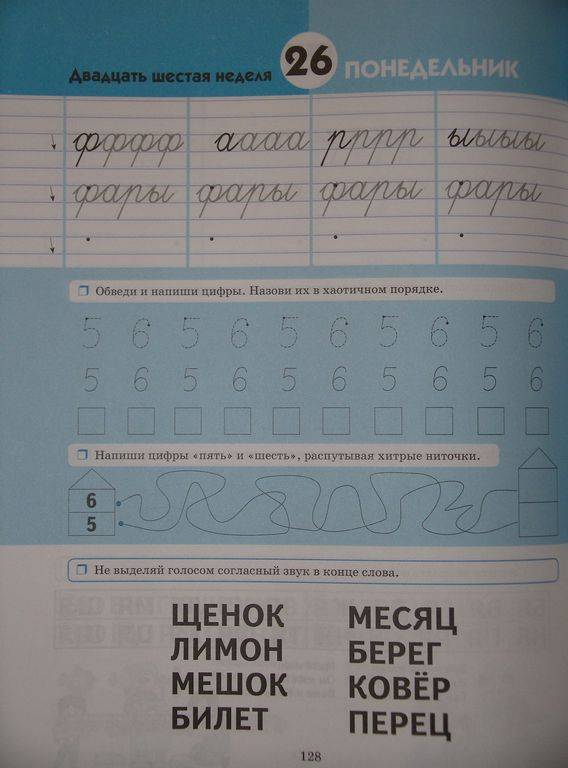 Двадцать шестая неделя 26 ПОНЕДЕЛЬНИК
ф ф ф ф а а а а р р р р ы ы ы ы
фары фары фары фары
Обведи и напиши цифры. Назови их в хаотичном порядке.
5 6 5 6 5 6 5 6 5 6
5 6 5 6 5 6 5 6 5 6
Напиши цифры «пять» и «шесть», распутывая хитрые ниточки.
6
5
Не выделяй голосом согласный звук в конце слова.
ЩЕНОК МЕСЯЦ
ЛИМОН БЕРЕГ
МЕШОК КОВЁР
БИЛЕТ ПЕРЕЦ
128